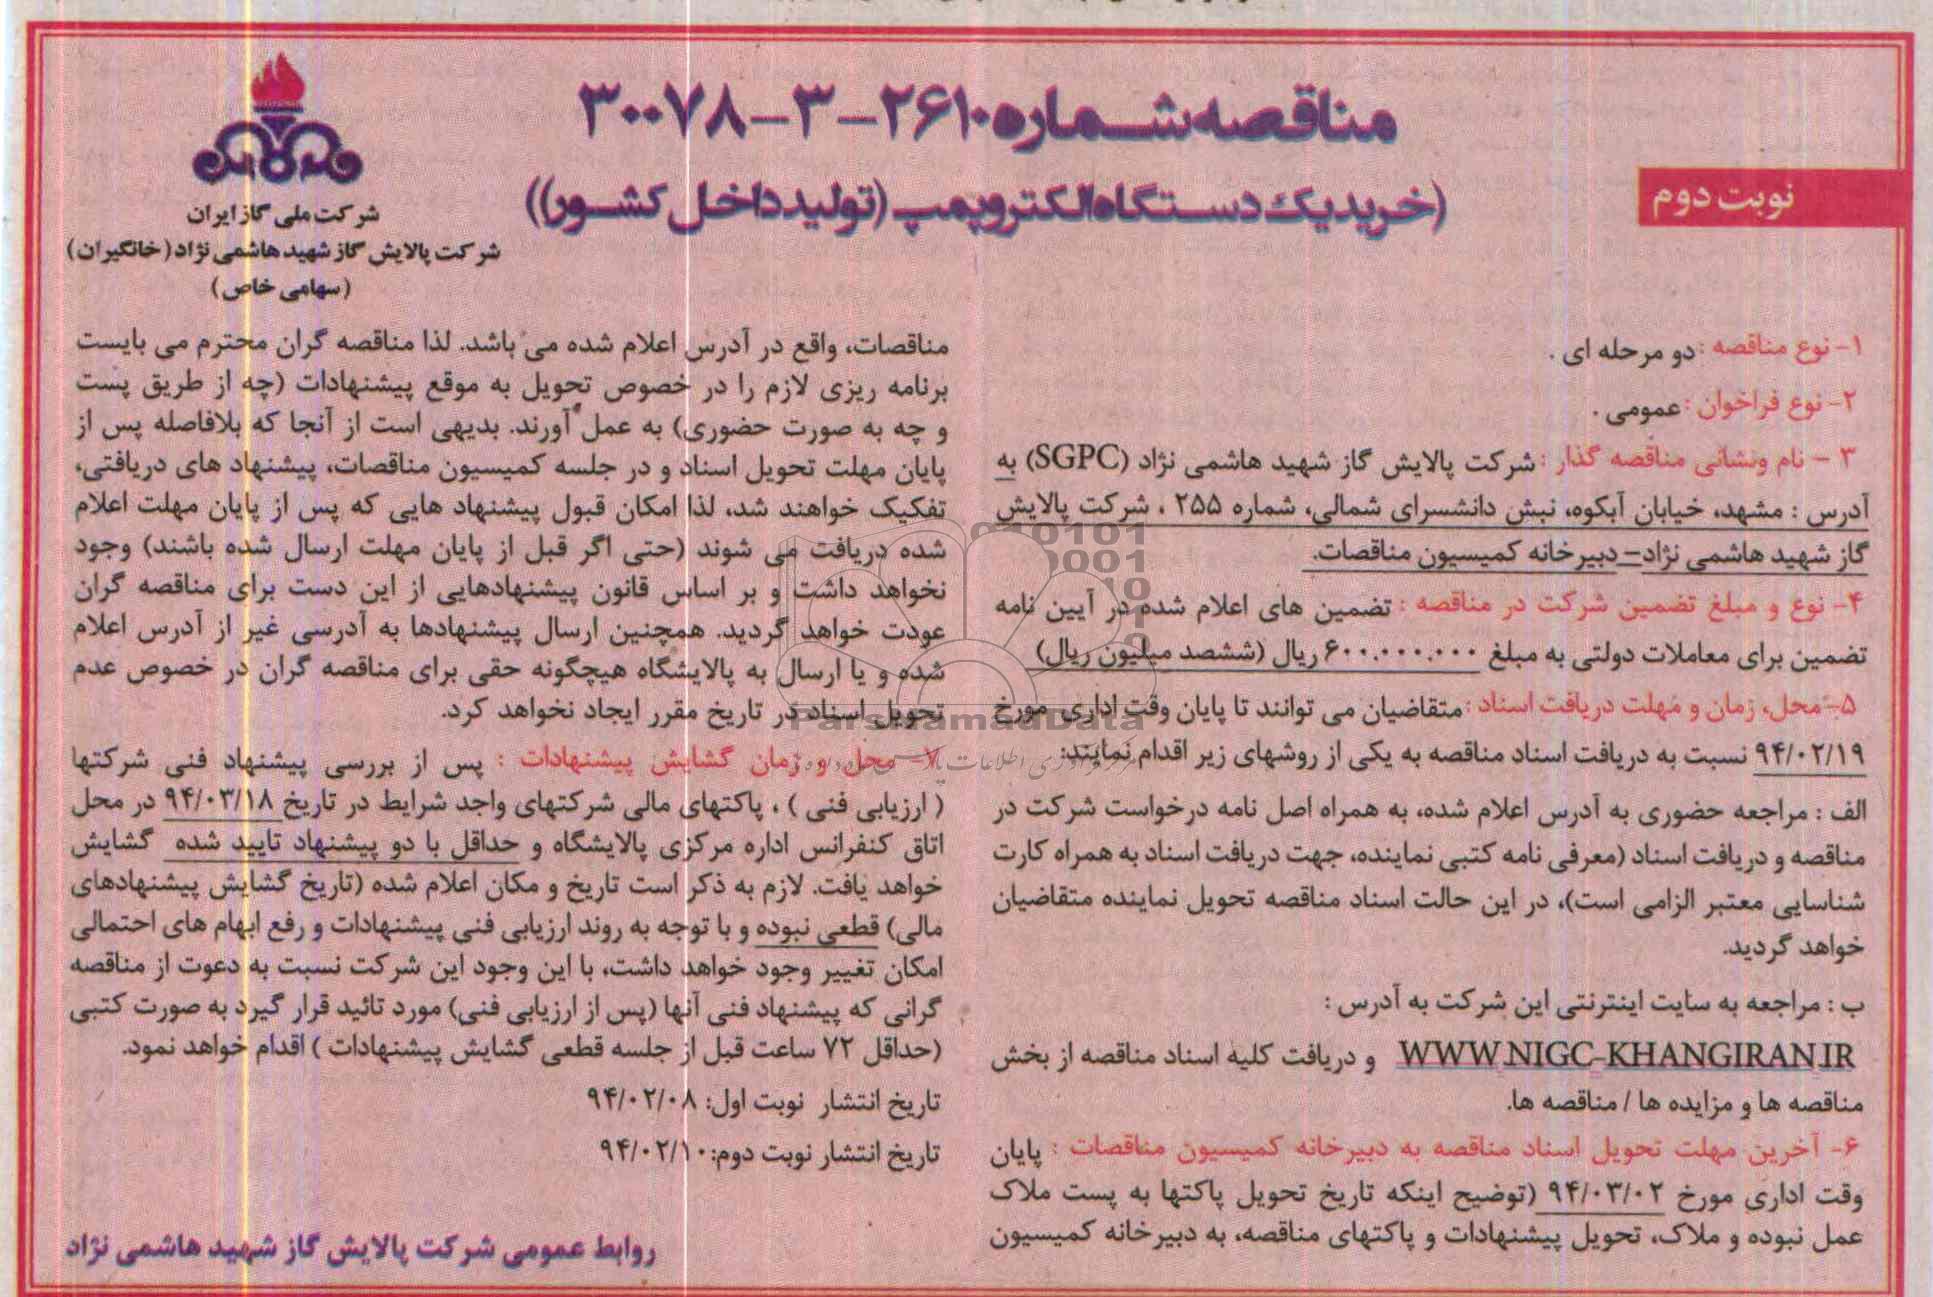 مناقصه شماره ۲۶۱۰-۳-۳۰۰۷۸
(خرید یک دستگاه الکتروپمپ (تولید داخل کشور))
نوبت دوم
شرکت ملی گاز ایران
شرکت پالایش گاز شهید هاشمی نژاد (خانگیران)
(سهامی خاص)
۱- نوع مناقصه : دو مرحله ای .
۲- نوع فراخوان : عمومی .
۳ - نام ونشانی مناقصه گذار : شرکت پالایش گاز شهید هاشمی نژاد (SGPC) به
آدرس : مشهد، خیابان آبکوه، نبش دانشسرای شمالی، شماره ۲۵۵ ، شرکت پالایش
گاز شهید هاشمی نژاد- دبیرخانه کمیسیون مناقصات.
۴- نوع و مبلغ تضمین شرکت در مناقصه : تضمین های اعلام شده در آیین نامه
تضمین برای معاملات دولتی به مبلغ ۶۰۰.۰۰۰.۰۰۰ ریال (ششصد میلیون ریال)
۵- محل، زمان و مهلت دریافت اسناد : متقاضیان می توانند تا پایان وقت اداری مورخ
۹۴/۰۲/۱۹ نسبت به دریافت اسناد مناقصه به یکی از روشهای زیر اقدام نمایند:
الف : مراجعه حضوری به آدرس اعلام شده، به همراه اصل نامه درخواست شرکت در
مناقصه و دریافت اسناد (معرفی نامه کتبی نماینده، جهت دریافت اسناد به همراه کارت
شناسایی معتبر الزامی است)، در این حالت اسناد مناقصه تحویل نماینده متقاضیان
خواهد گردید.
ب : مراجعه به سایت اینترنتی این شرکت به آدرس :
WWW.NIGC-KHANGIRAN.IR و دریافت کلیه اسناد مناقصه از بخش
مناقصه ها و مزایده ها / مناقصه ها.
۶- آخرین مهلت تحویل اسناد مناقصه به دبیرخانه کمیسیون مناقصات : پایان
وقت اداری مورخ ۹۴/۰۳/۰۲ (توضیح اینکه تاریخ تحویل پاکتها به پست ملاک
عمل نبوده و ملاک، تحویل پیشنهادات و پاکتهای مناقصه، به دبیرخانه کمیسیون
مناقصات، واقع در آدرس اعلام شده می باشد. لذا مناقصه گران محترم می بایست
برنامه ریزی لازم را در خصوص تحویل به موقع پیشنهادات (چه از طریق پست
و چه به صورت حضوری) به عمل آورند. بدیهی است از آنجا که بلافاصله پس از
پایان مهلت تحویل اسناد و در جلسه کمیسیون مناقصات، پیشنهاد های دریافتی،
تفکیک خواهند شد، لذا امکان قبول پیشنهاد هایی که پس از پایان مهلت اعلام
شده دریافت می شوند (حتی اگر قبل از پایان مهلت ارسال شده باشند) وجود
نخواهد داشت و بر اساس قانون پیشنهادهایی از این دست برای مناقصه گران
عودت خواهد گردید. همچنین ارسال پیشنهادها به آدرسی غیر از آدرس اعلام
شده و یا ارسال به پالایشگاه هیچگونه حقی برای مناقصه گران در خصوص عدم
تحویل اسناد در تاریخ مقرر ایجاد نخواهد کرد.
۷- محل و زمان گشایش پیشنهادات : پس از بررسی پیشنهاد فنی شرکتها
( ارزیابی فنی ) ، پاکتهای مالی شرکتهای واجد شرایط در تاریخ ۹۴/۰۳/۱۸ در محل
اتاق کنفرانس اداره مرکزی پالایشگاه و حداقل با دو پیشنهاد تایید شده گشایش
خواهد یافت. لازم به ذکر است تاریخ و مکان اعلام شده (تاریخ گشایش پیشنهادهای
مالی) قطعی نبوده و با توجه به روند ارزیابی فنی پیشنهادات و رفع ابهام های احتمالی
امکان تغییر وجود خواهد داشت، با این وجود این شرکت نسبت به دعوت از مناقصه
گرانی که پیشنهاد فنی آنها (پس از ارزیابی فنی) مورد تائید قرار گیرد به صورت کتبی
(حداقل ۷۲ ساعت قبل از جلسه قطعی گشایش پیشنهادات ) اقدام خواهد نمود.
تاریخ انتشار نوبت اول: ۹۴/۰۲/۰۸
تاریخ انتشار نوبت دوم: ۹۴/۰۲/۱۰
روابط عمومی شرکت پالایش گاز شهید هاشمی نژاد
ParsNamadData